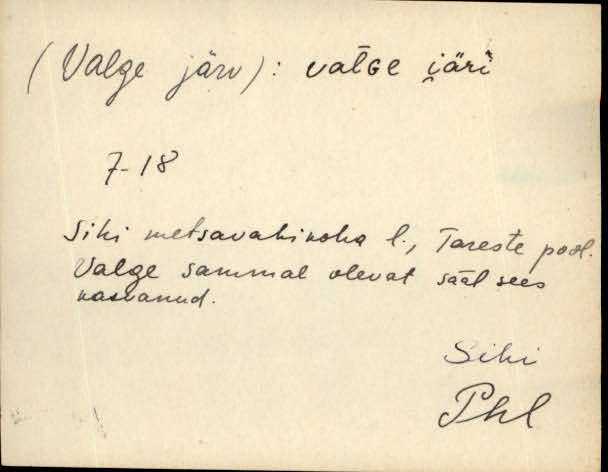 (Valge järv): vatGe i̯äri
7-18
Sihi metsavahikoha l., Tareste pool.
Valge sammal olevat sääl sees
kasvanud.
Sihi
Phl